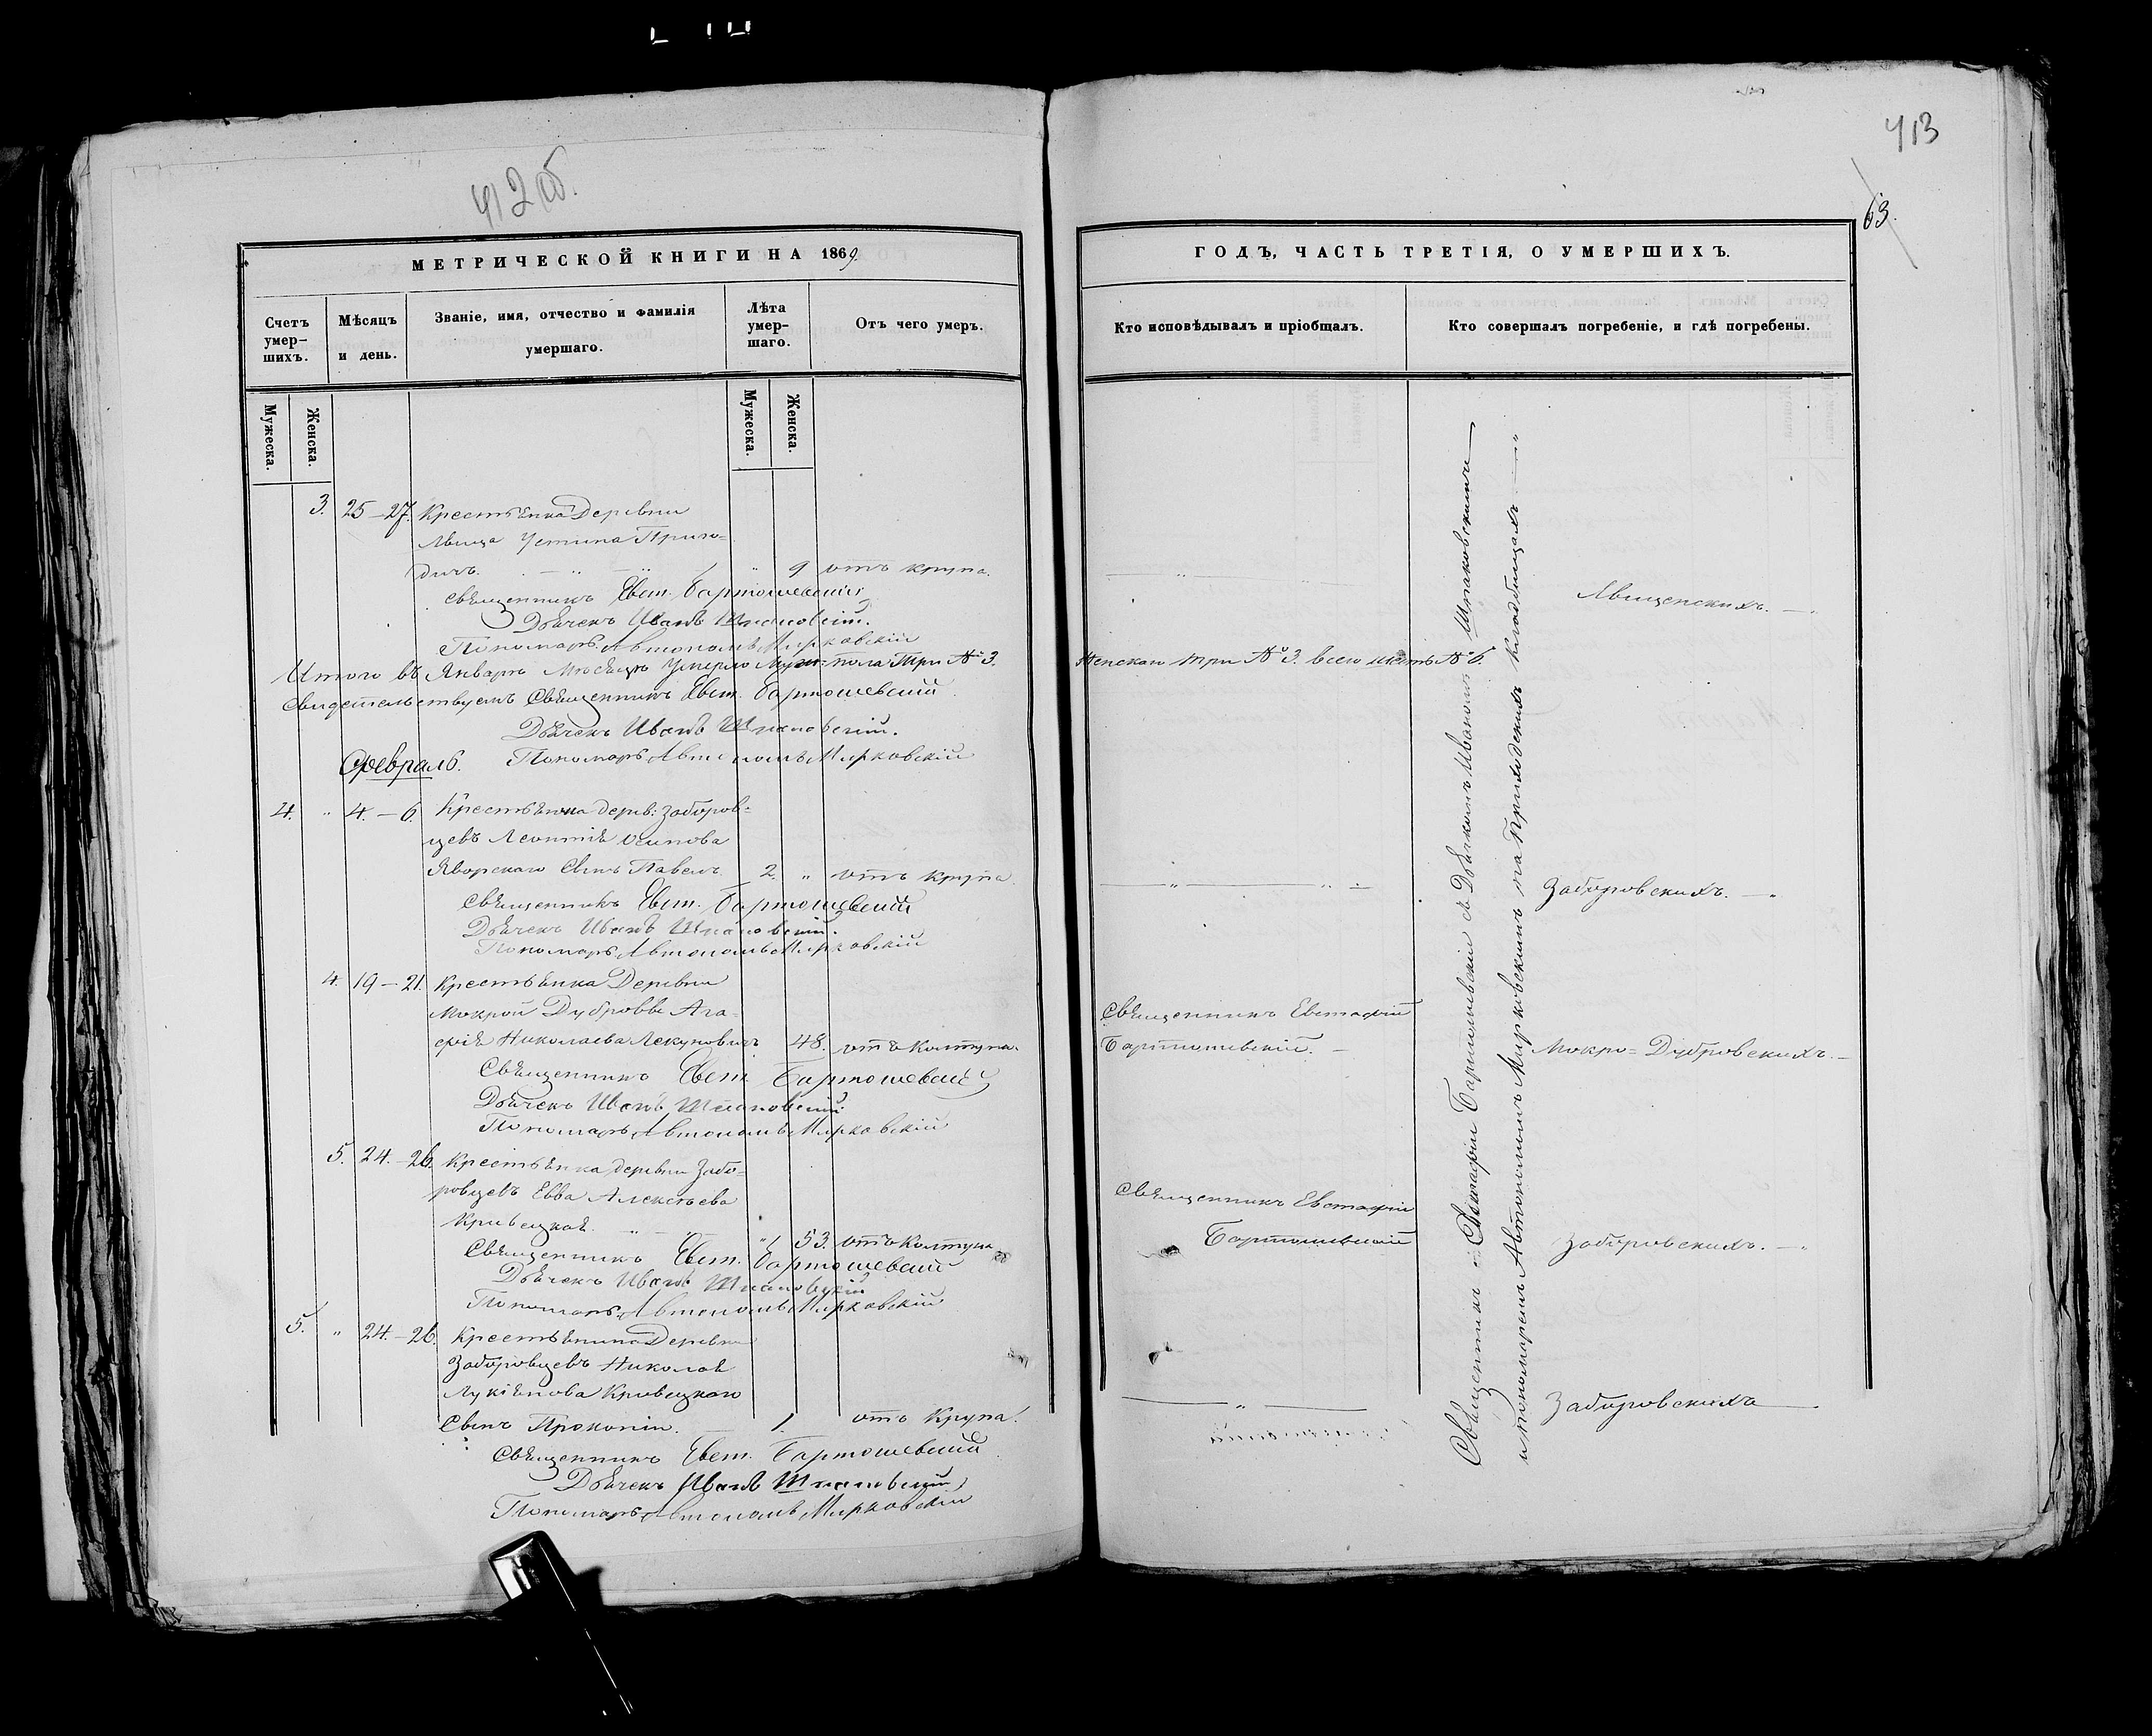 412об.
МЕТРИЧЕСКОЙ КНИГИ НА 1869
Счетъ умер-
шихъ.
Мѣсяцъ
и день.
Званіе, имя, отчество и фамилія
умершаго.
Лѣта
умер-
шаго.
Отъ чего умеръ.
Мужеска.
Женска.
Мужеска.
Женска.
3. 25–27. Крестьянка Деревни
Лвища Устина Приго=
дичъ. " 9 отъ крупа.
Священникъ Евст. Бартошевскій
Дьячекъ Иванъ Шпаковскій.
Пономарь Автономъ Мирковскій
Итого въ Январѣ Мѣсяцѣ Умерло Муж: пола Три № 3.
Свидетельствуемъ Священникъ Евст. Бартошевскій
Дьячекъ Иванъ Шпаковскій.
Февраль. Пономарь Автономъ Мирковскій
4. " 4.–6. Крестьянина дерев: Заборов-
цевъ Леонтія Осипова
Яворскаго Сынъ Павелъ. 2. " отъ крупа
Священникъ Евст. Бартошевскій
Дьячекъ Иванъ Шпаковскій.
Пономарь Автономъ Мирковскій
4. 19–21. Крестьянка Деревни
Мокрой Дубровы Ага-
фія Николаева 48. отъ Колтуна.
Священникъ Евст. Бартошевскій
Дьячекъ Иванъ Шпаковскій
Пономарь Автономъ Мирковскій
5. 24.–26. Крестьянка деревни Забо-
ровцевъ Евва Алексѣева
Кривецкая. " 53. отъ Колтуна
Священникъ Евст. Бартошевскій
Дьячекъ Иванъ Шпаковскій
Пономарь Автономъ Мирковскій
5. " 24.–26. Крестьянина Деревни
Заборовцевъ Николая
Лукіянова Кривецкаго
Сынъ Прокопій. 1. отъ Крупа.
Священникъ Евст. Бартошевскій
Дьячекъ Иванъ Шпаковскій
Пономарь Автономъ Мирковскій
413
63.
ГОДЪ, ЧАСТЬ ТРЕТІЯ, О УМЕРШИХЪ.
Кто исповѣдывалъ и пріобщалъ.
Кто совершалъ погребеніе, и гдѣ погребены.
Лвищенскихъ.
Женскаго три № 3. всего шесть № 6.
Заборовскихъ.
Священникъ Евстафій
Бартошевскій.
Мокро=Дубровскихъ.
Священникъ Евстафій
Бартошевскій
Заборовскихъ.
Заборовскихъ
Священникъ Евстафій Бартошевскій съ Дьячкомъ Иваномъ Шпаковскимъ
и пономаремъ Автономомъ Мирковскимъ на Приходскихъ кладбищахъ